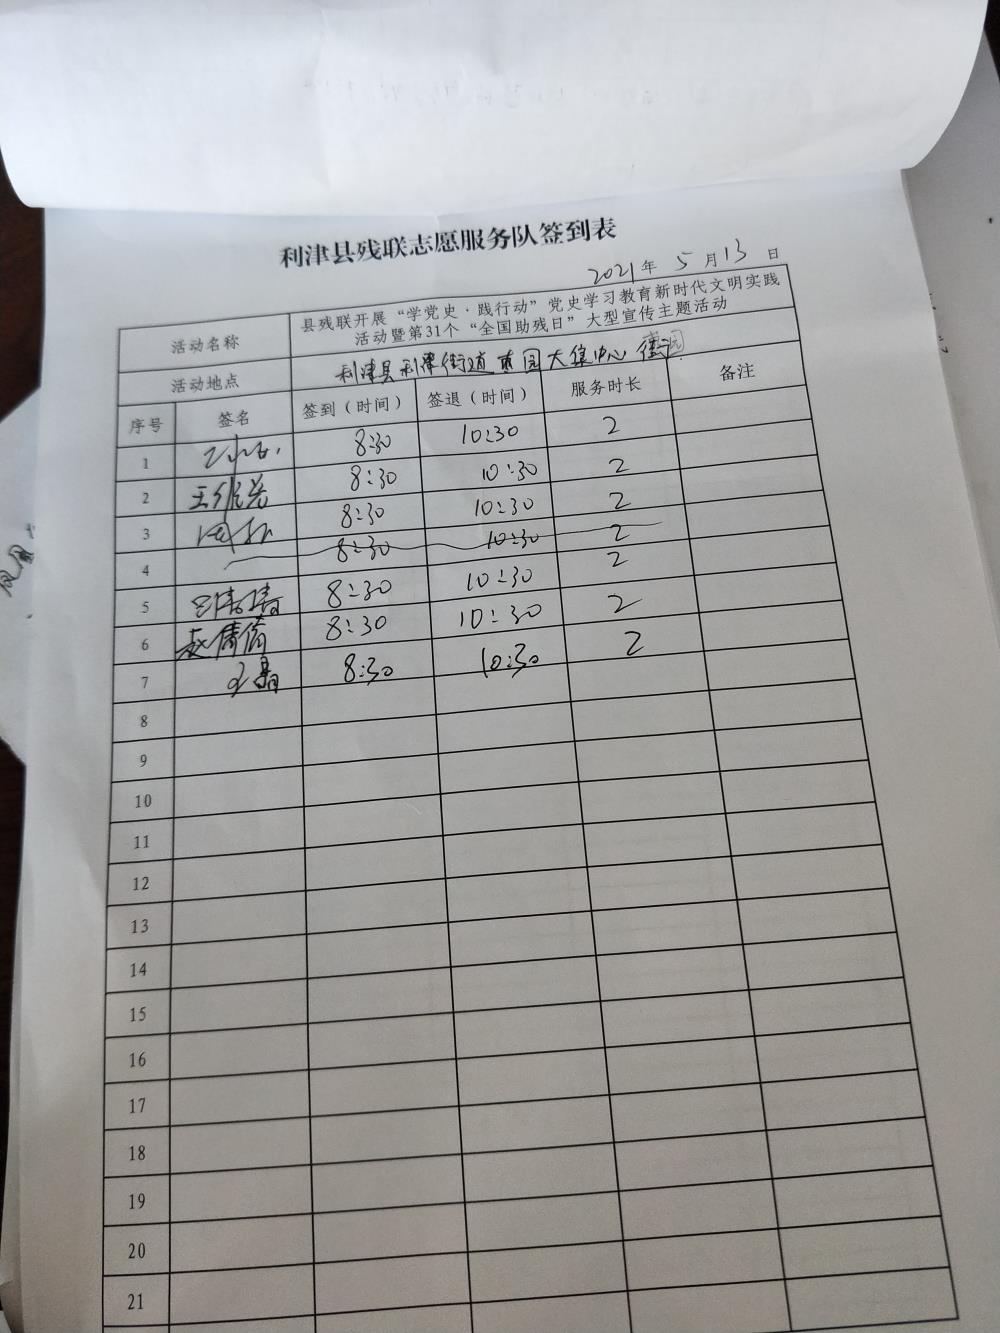 利津县残联志愿服务队签到表
2021年 5 月 13 日
活动名称 县残联开展“学党史·践行动”党史学习教育新时代文明实践
活动暨第31个“全国助残日”大型宣传主题活动
活动地点 利津县利津街道 园大 中心
序号 签名 签到(时间) 签退(时间) 服务时长 备注
1 8:30 10:30 2
2 8:30 10:30 2
3 8:30 10:30 2
4 8:30 10:30 2
5 8:30 10:30 2
6 赵倩倩 8:30 10:30 2
7 王晶 8:30 10:30 2
8
9
10
11
12
13
14
15
16
17
18
19
20
21